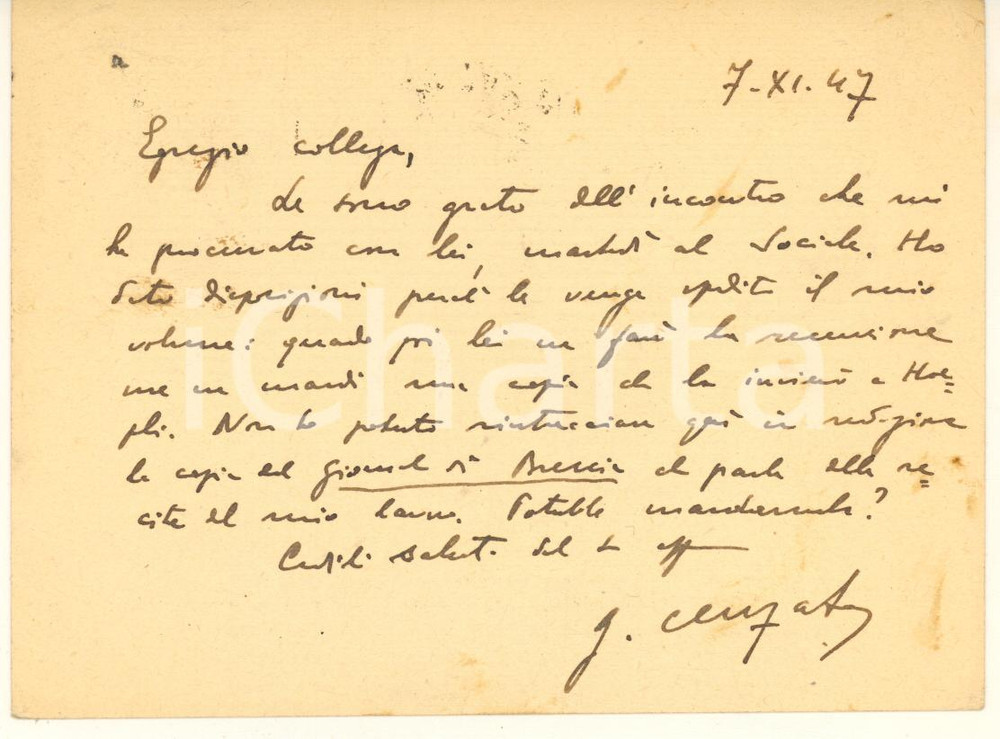 7-XI.47
Egregio collega,
Le sono grato dell'incontro che mi
ha procurato con lei, martedì al Sociale. Ho
dato disposizioni perché le venga spedito il mio
volume: quando poi lei ne farà la recensione
me ne mandi una copia che la invierò a Hoe=
pli. Non ho potuto rintracciare qui in redazione
la copia del Giornale di Brescia che parla della re=
cita del mio lavoro. Potrebbe mandarmela?
Cordiali saluti dal suo aff
G. Cenzato
iCharta